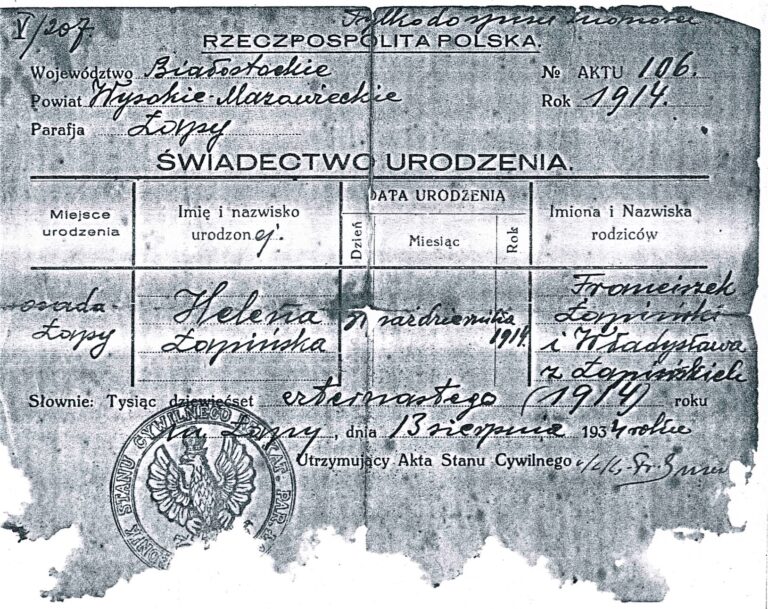 V/207
Tylko do
RZECZPOSPOLITA POLSKA.
Województwo Białostockie
№ AKTU 106.
Powiat Wysokie-Mazowieckie
Rok 1914.
Parafja Łapy
ŚWIADECTWO URODZENIA.
Miejsce urodzenia
Imię i nazwisko urodzonej.
DATA URODZENIA
Dzień
Miesiąc
Rok
Imiona i Nazwiska rodziców
osada
Łapy
Helena
Łapińska
października
1914.
Franciszek
Łapiński
i Władysława
z Łapińskich
Słownie: Tysiąc dziewięćset czternastego (1914) roku
Łapy, dnia 13 sierpnia 1934 roku
Utrzymujący Akta Stanu Cywilnego
STANU CYWILNEGO
PAR